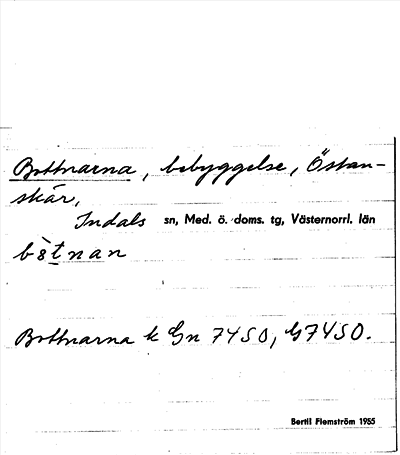 Bottnarna, bebyggelse, Östan-
skär,
Indals sn, Med. ö. doms. tg, Västernorrl. län
Bottnarna k Gn 7450, G7450.
Bertil Flemström 1955